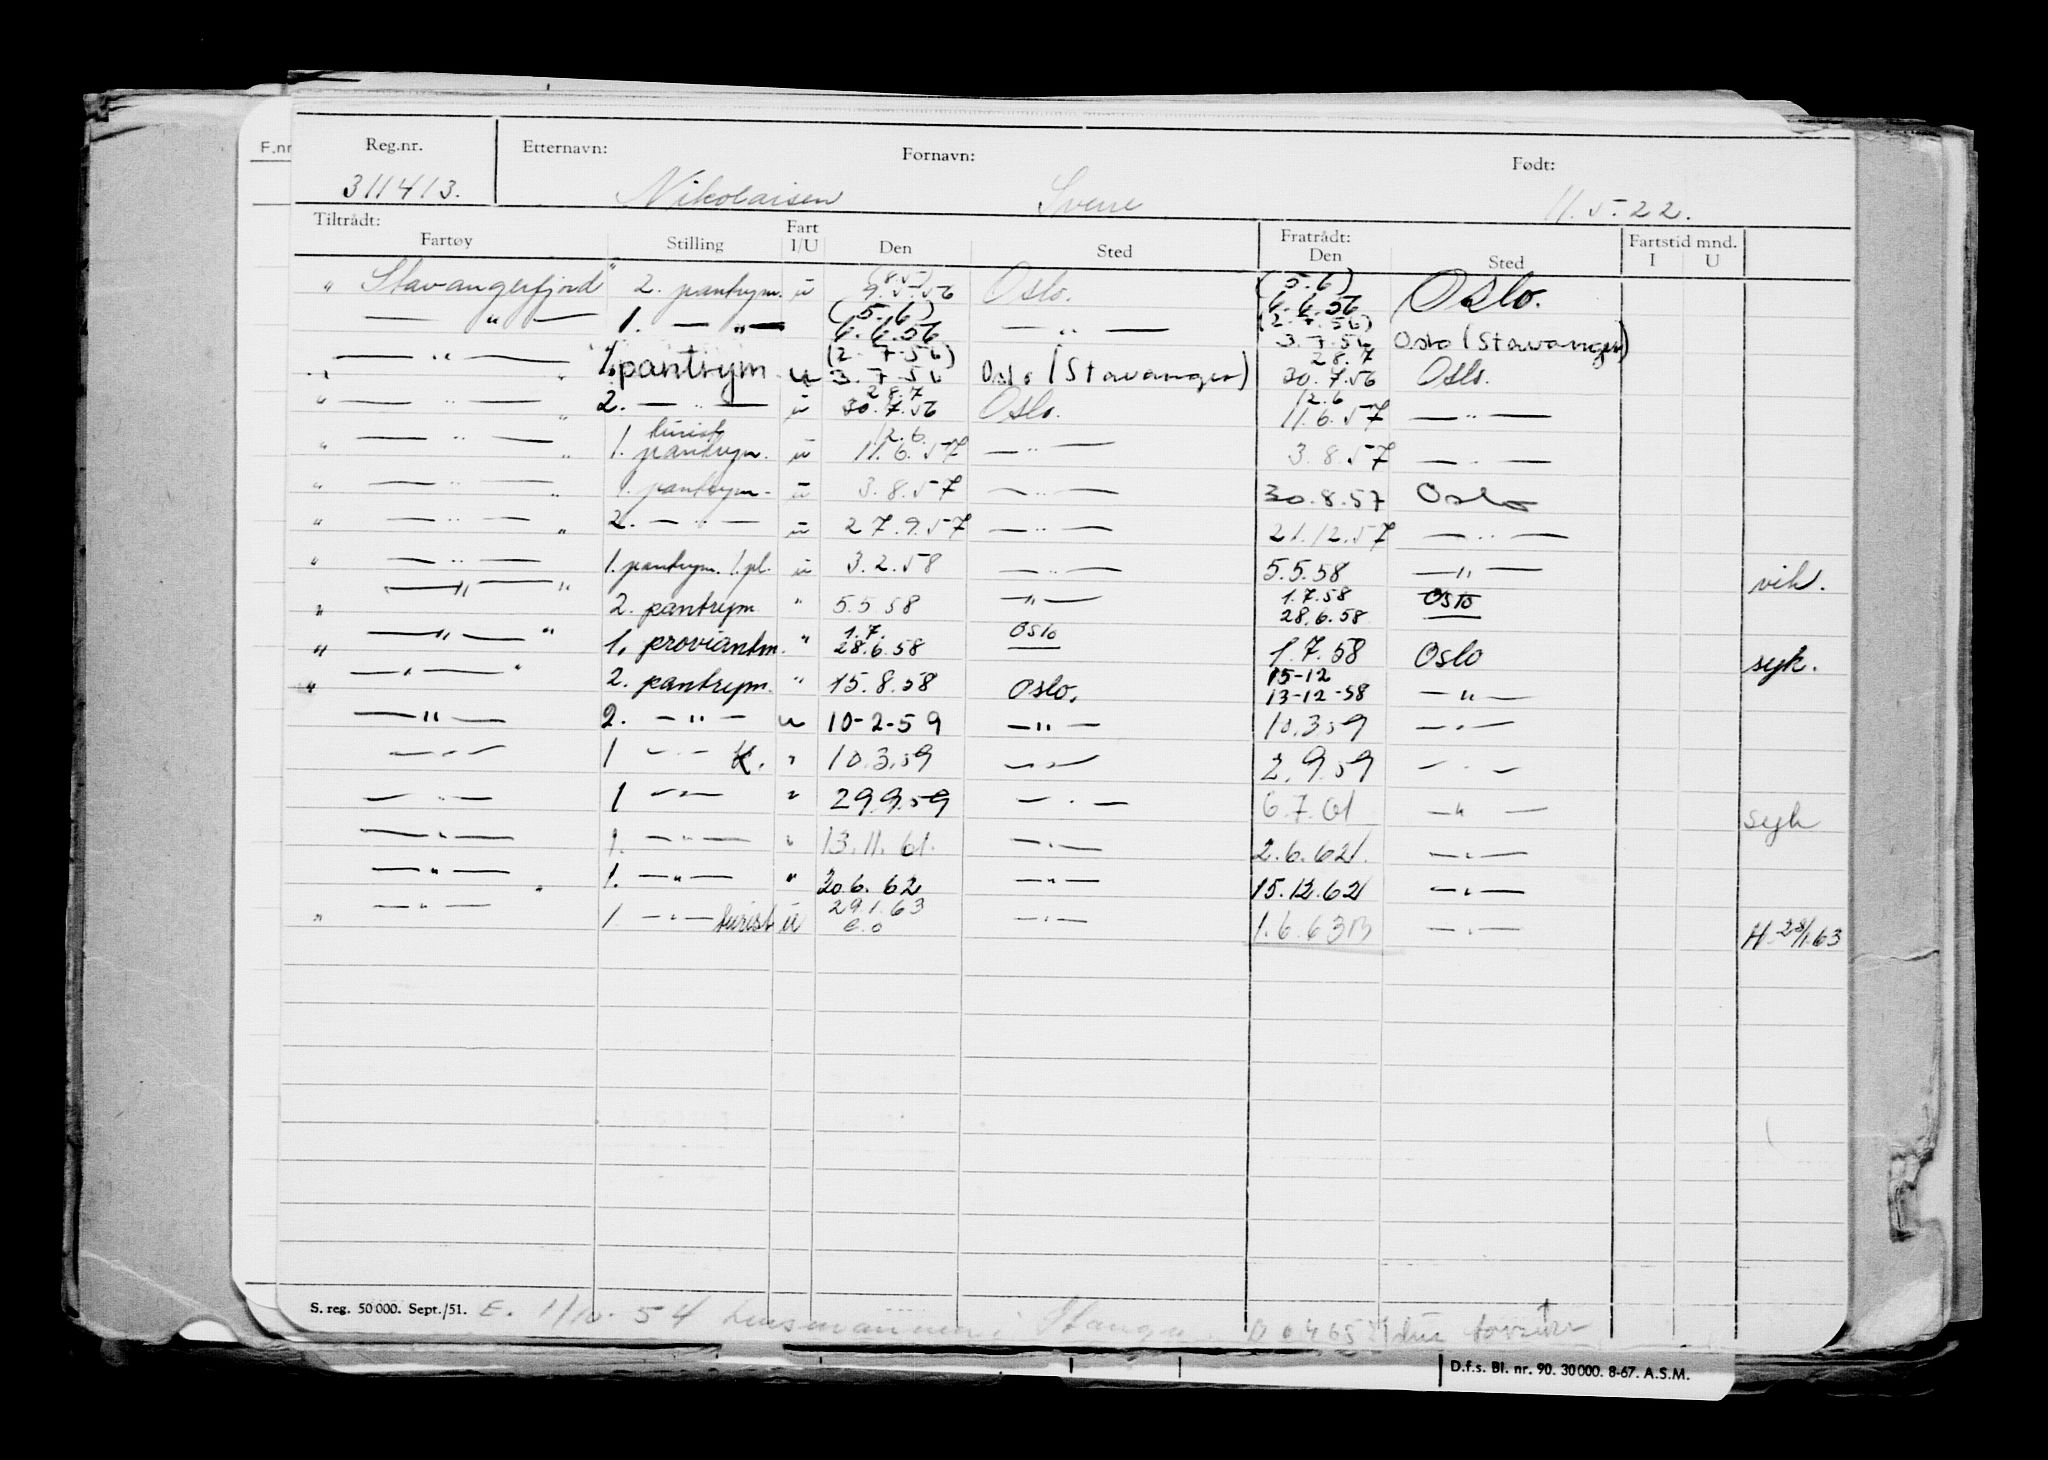 F.nr
Reg.nr. Etternavn: Fornavn: Født:
311413. Nikolaisen Sverre 11.5.22.
Tiltrådt: Fratrådt: Fartstid mnd.
Fartøy Stilling Fart I/U Den Sted Den Sted I U
(8.5) (5.6)
" Stavangerfjord" 2. pantrym. ü 9.5.56 Oslo. 6.6.56 Oslo.
(5.6) (2.7.56)
— " — 1. — " — 6.6.56 — " — 3.7.56 Oslo (Stavanger)
(2.7.56) 28.7
" — " — " 1. pantrym u 3.7.56 Oslo (Stavanger) 30.7.56 Oslo.
28.7 12.6
" — " — " 2. — " — ü 30.7.56 Oslo. 11.6.57 — " —
turist 12.6.
" — " — " 1. pantrym. ü 11.6.57 — " — 3.8.57 — " —
" — " — " 1. pantrym. ü 3.8.57 — " — 30.8.57 Oslo
" — " — " 2. — " — ü 27.9.57 — " — 21.12.57 — " —
" — " — 1. pantrym. 1. pl. ü 3.2.58 — " — 5.5.58 — " — vik.
1.7.58 Oslo
" — " — " 2. pantrym " 5.5.58 — " — 28.6.58 —
1.7. Oslo
" — " — " 1. proviantm. " 28.6.58 — 1.7.58 Oslo syk.
15-12
" — " — " 2. pantrym. " 15.8.58 Oslo. 13-12-58 — " —
— " — 2. — " — u 10-2-59 — " — 10.3.59 — " —
— " — 1 — " — K. " 10.3.59 — " — 2.9.59 — " —
— " — 1 — " — " 29.9.59 — " — 6.7.61 — " — syk
— " — 1. — " — " 13.11.61. — " — 2.6.62. — " —
— " — " 1. — " — " 20.6.62 — " — 15.12.62 — " —
29.1.63
" — " — 1 — " — turist ü e.o — " — 1.6.63 — " — H 28/1.63
S. reg. 50 000. Sept./51. E. 1/10. 54 Lensmannen i Stange
D.f.s. Bl. nr. 90. 30 000. 8-67. A.S.M.